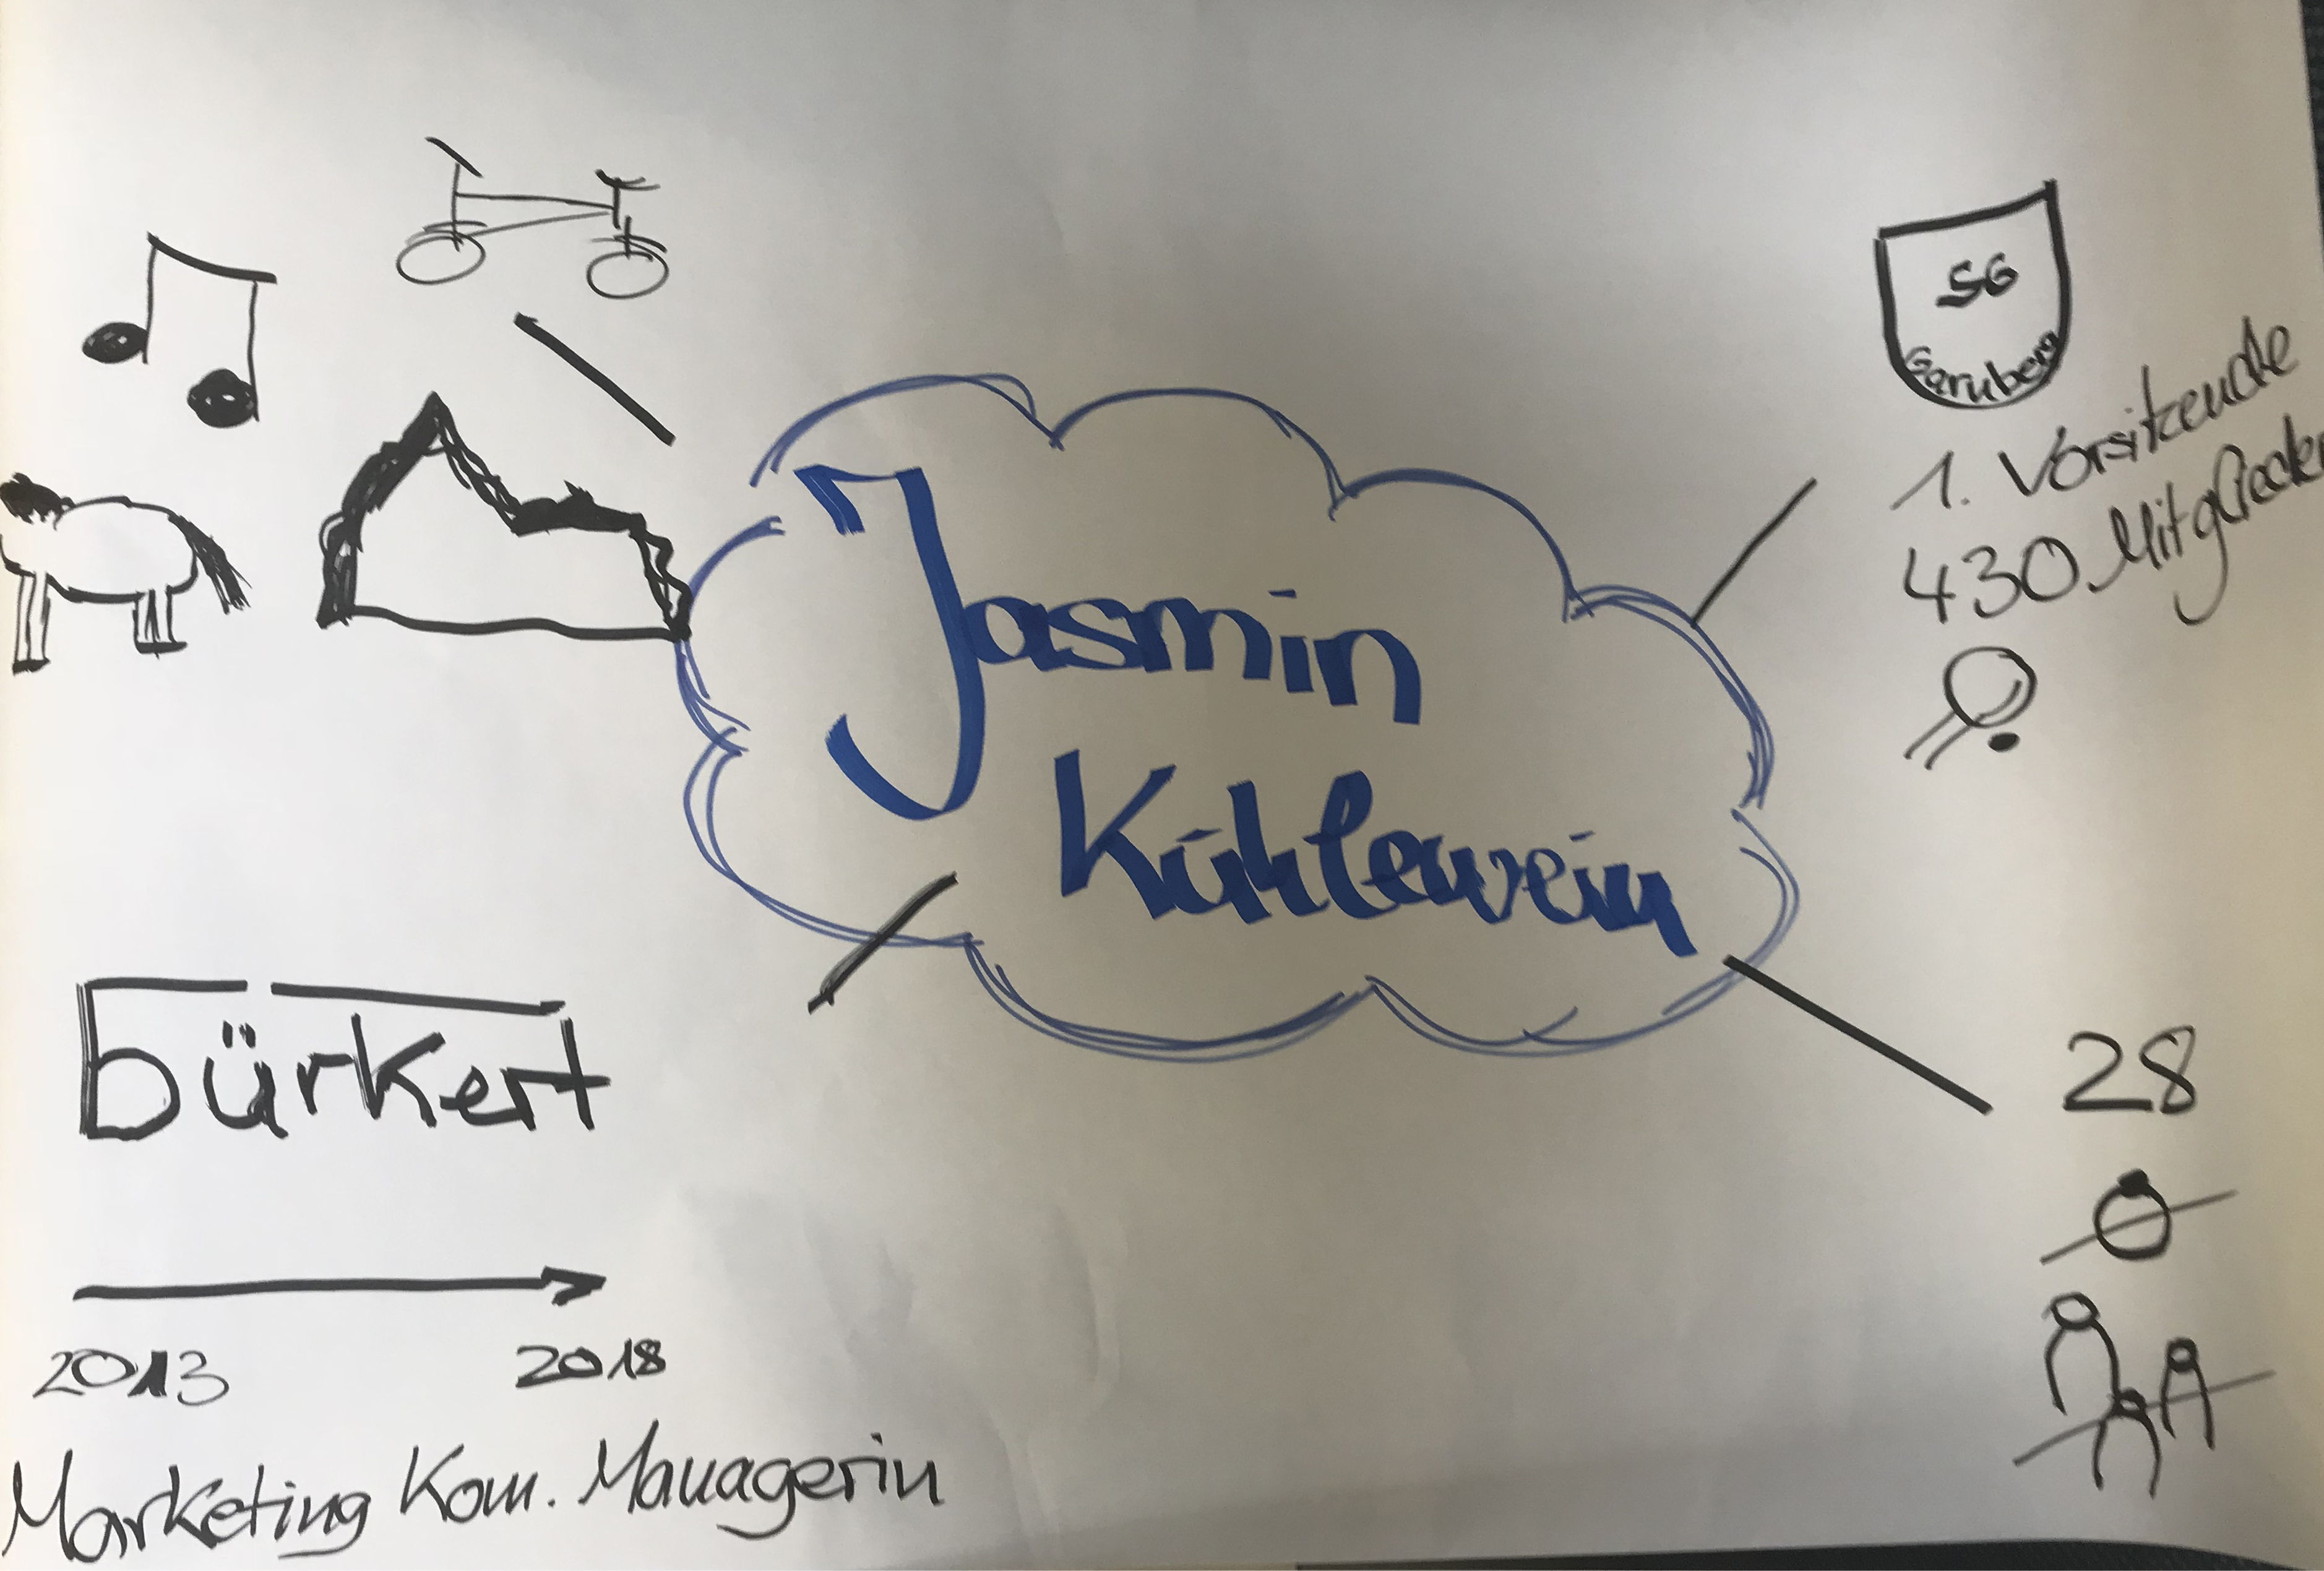 SG
Garnberg
1. Vorsitzende
430 Mitglieder
Jasmin
Kühlewein
bürkert
28
2013 2018
Marketing Kom. Managerin